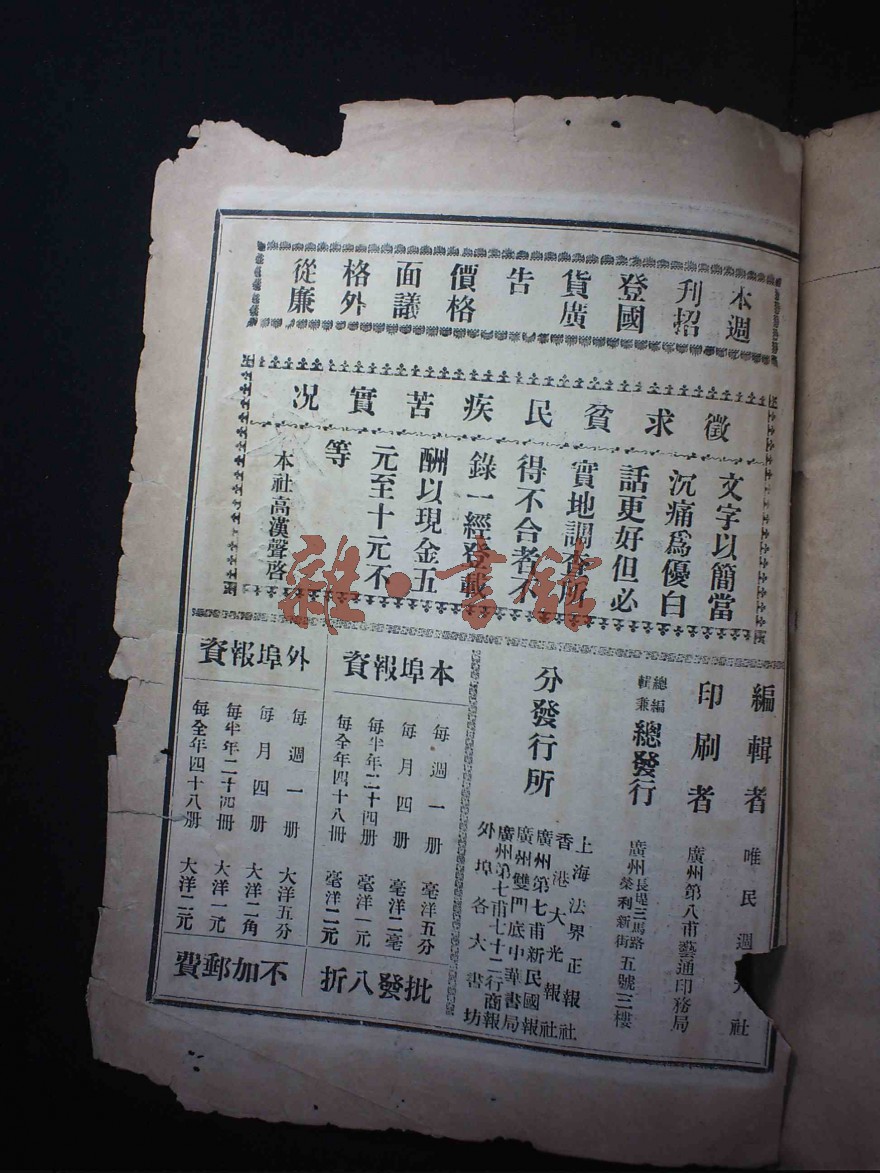 本週
刊招
登國
貨廣
告
價格
面議
格外
從廉
徵求貧民疾苦實况
文字以簡當
沉痛爲優白
話更好但必
實地調查所
得不合者不
錄一經登載
酬以現金五
元至十元不
等
本社高漢聲啓
編輯者 唯民週 社
印刷者 廣州第八甫藝通印務局
總編輯兼總發行 廣州長堤三馬路榮利新街五號三樓
分發行所
上海法界正報社
香港大光報社
廣州第七甫新民國報
廣州雙門底中華書局
廣州第七甫七十二行商報
外埠各大書坊
本埠報資
每週一册 毫洋五分
每月四册 毫洋二毫
每半年二十四册 毫洋一元
每全年四十八册 毫洋二元
批發八折
外埠報資
每週一册 大洋五分
每月四册 大洋二角
每半年二十四册 大洋一元
每全年四十八册 大洋二元
不加郵費
雜·書館